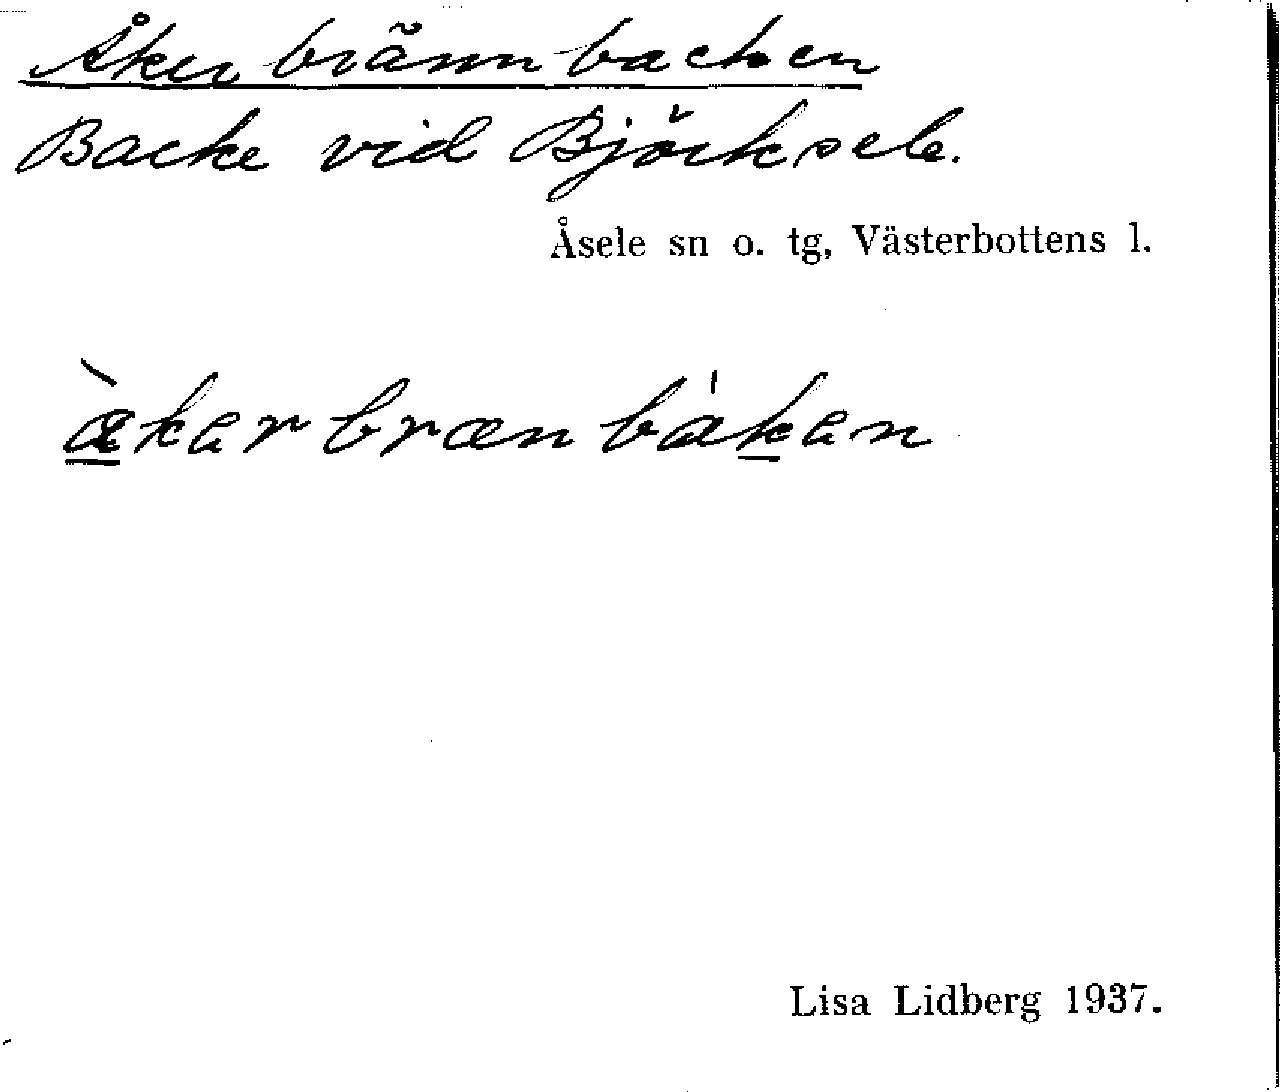 Åkerbrännbacken
Backe vid Björksele.
Åsele sn o. tg, Västerbottens l.
àkerbrænbáken
Lisa Lidberg 1937.